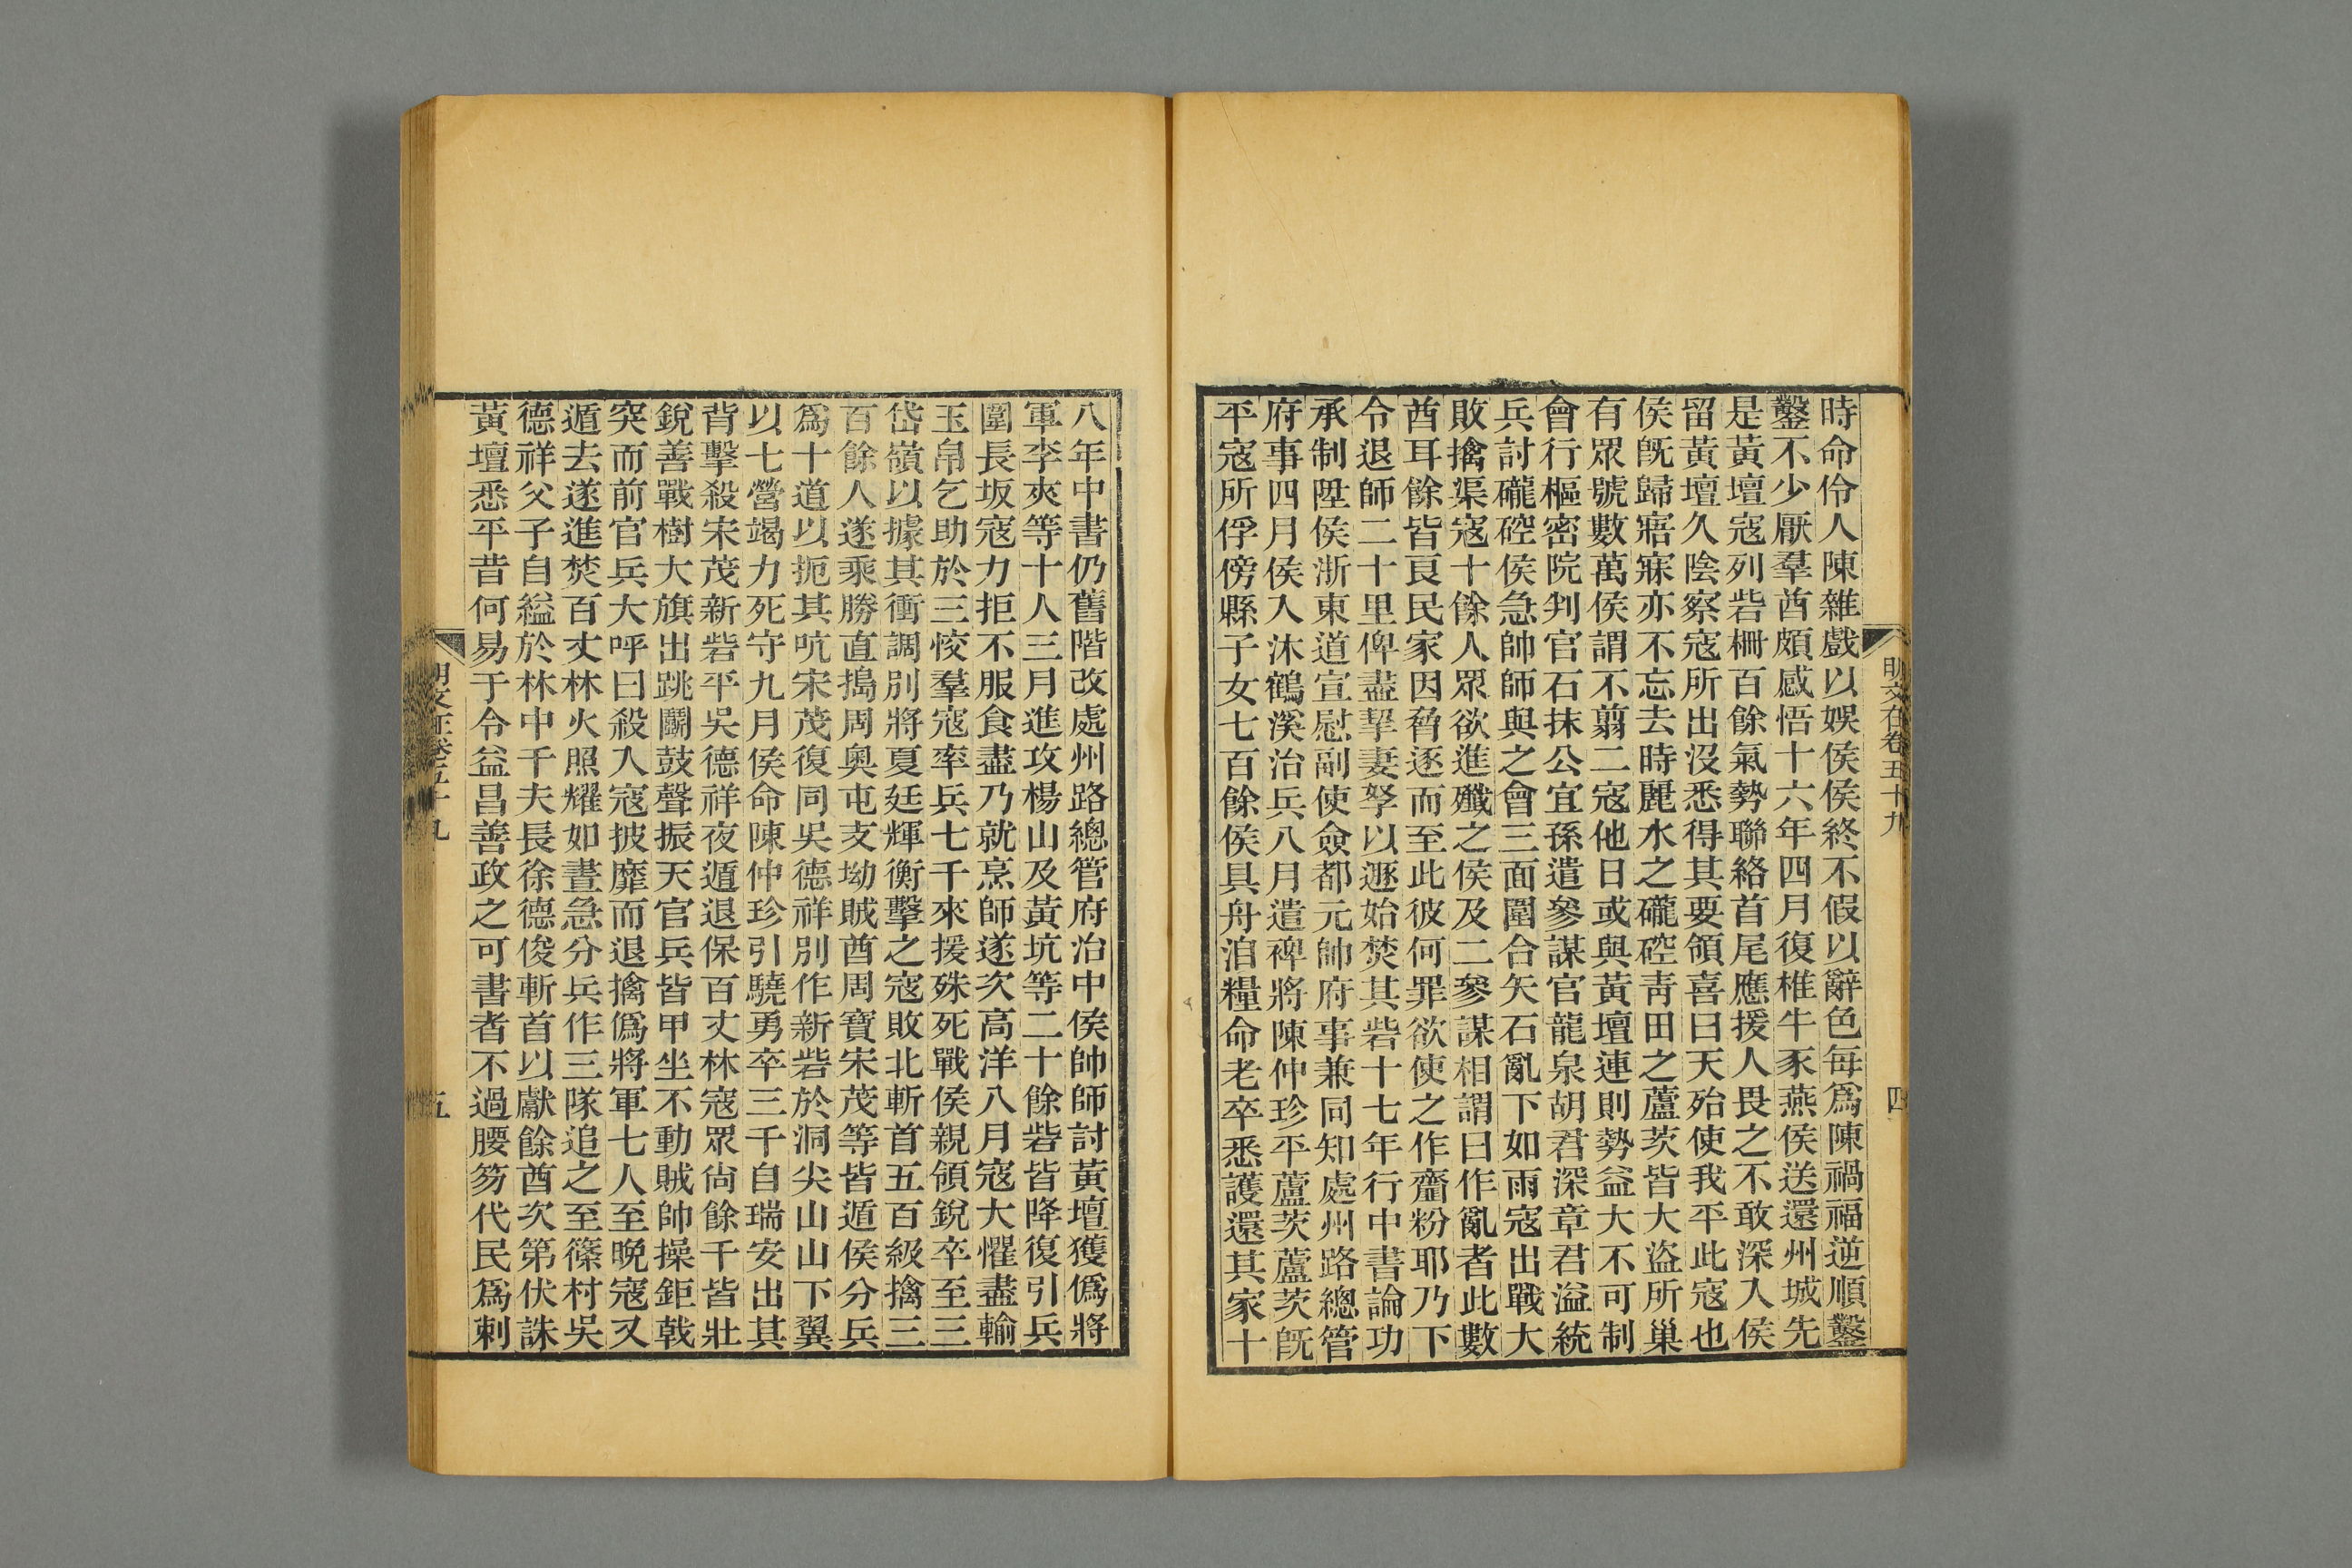 明文在卷五十九
四
時命伶人陳雜戲以娛侯侯終不假以辭色每爲陳禍福逆順鑿
鑿不少厭羣酋頗感悟十六年四月復椎牛豕燕侯送還州城先
是黃壇寇列砦柵百餘氣勢聯絡首尾應援人畏之不敢深入侯
留黃壇久陰察寇所出沒悉得其要領喜曰天殆使我平此寇也
侯旣歸寤寐亦不忘去時麗水之礲硿靑田之蘆茨皆大盜所巢
有眾號數萬侯謂不翦二寇他日或與黃壇連則勢益大不可制
會行樞密院判官石抹公宜孫遣參謀官龍泉胡君深章君溢統
兵討礲硿侯急帥師與之會三面圍合矢石亂下如雨寇出戰大
敗擒渠寇十餘人眾欲進殲之侯及二參謀相謂曰作亂者此數
酋耳餘皆良民家因脅逐而至此彼何罪欲使之作齏粉耶乃下
令退師二十里俾盡挈妻孥以遯始焚其砦十七年行中書論功
承制陞侯浙東道宣慰副使僉都元帥府事兼同知處州路總管
府事四月侯入沐鶴溪治兵八月遣裨將陳仲珍平蘆茨蘆茨旣
平寇所俘傍縣子女七百餘侯具舟洎糧命老卒悉護還其家十
八年中書仍舊階改處州路總管府治中侯帥師討黃壇獲僞將
軍李夾等十人三月進攻楊山及黃坑等二十餘砦皆降復引兵
圍長坂寇力拒不服食盡乃就烹師遂次高洋八月寇大懼盡輸
玉帛乞助於三㤊羣寇率兵七千來援殊死戰侯親領銳卒至三
岱嶺以據其衝調別將夏廷輝衡擊之寇敗北斬首五百級擒三
百餘人遂乘勝直搗周奧屯支坳賊酋周寶宋茂等皆遁侯分兵
爲十道以扼其吭宋茂復同吳德祥別作新砦於洞尖山山下翼
以七營竭力死守九月侯命陳仲珍引驍勇卒三千自瑞安出其
背擊殺宋茂新砦平吳德祥夜遁退保百丈林寇眾尙餘千皆壯
銳善戰樹大旗出跳鬭鼓聲振天官兵皆甲坐不動賊帥操鉅戟
突而前官兵大呼曰殺入寇披靡而退擒僞將軍七人至晚寇又
遁去遂進焚百丈林火照耀如晝急分兵作三隊追之至篠村吳
德祥父子自縊於林中千夫長徐德俊斬首以獻餘酋次第伏誅
黃壇悉平昔何易于令益昌善政之可書者不過腰笏代民爲剌
明文在卷五十九
五